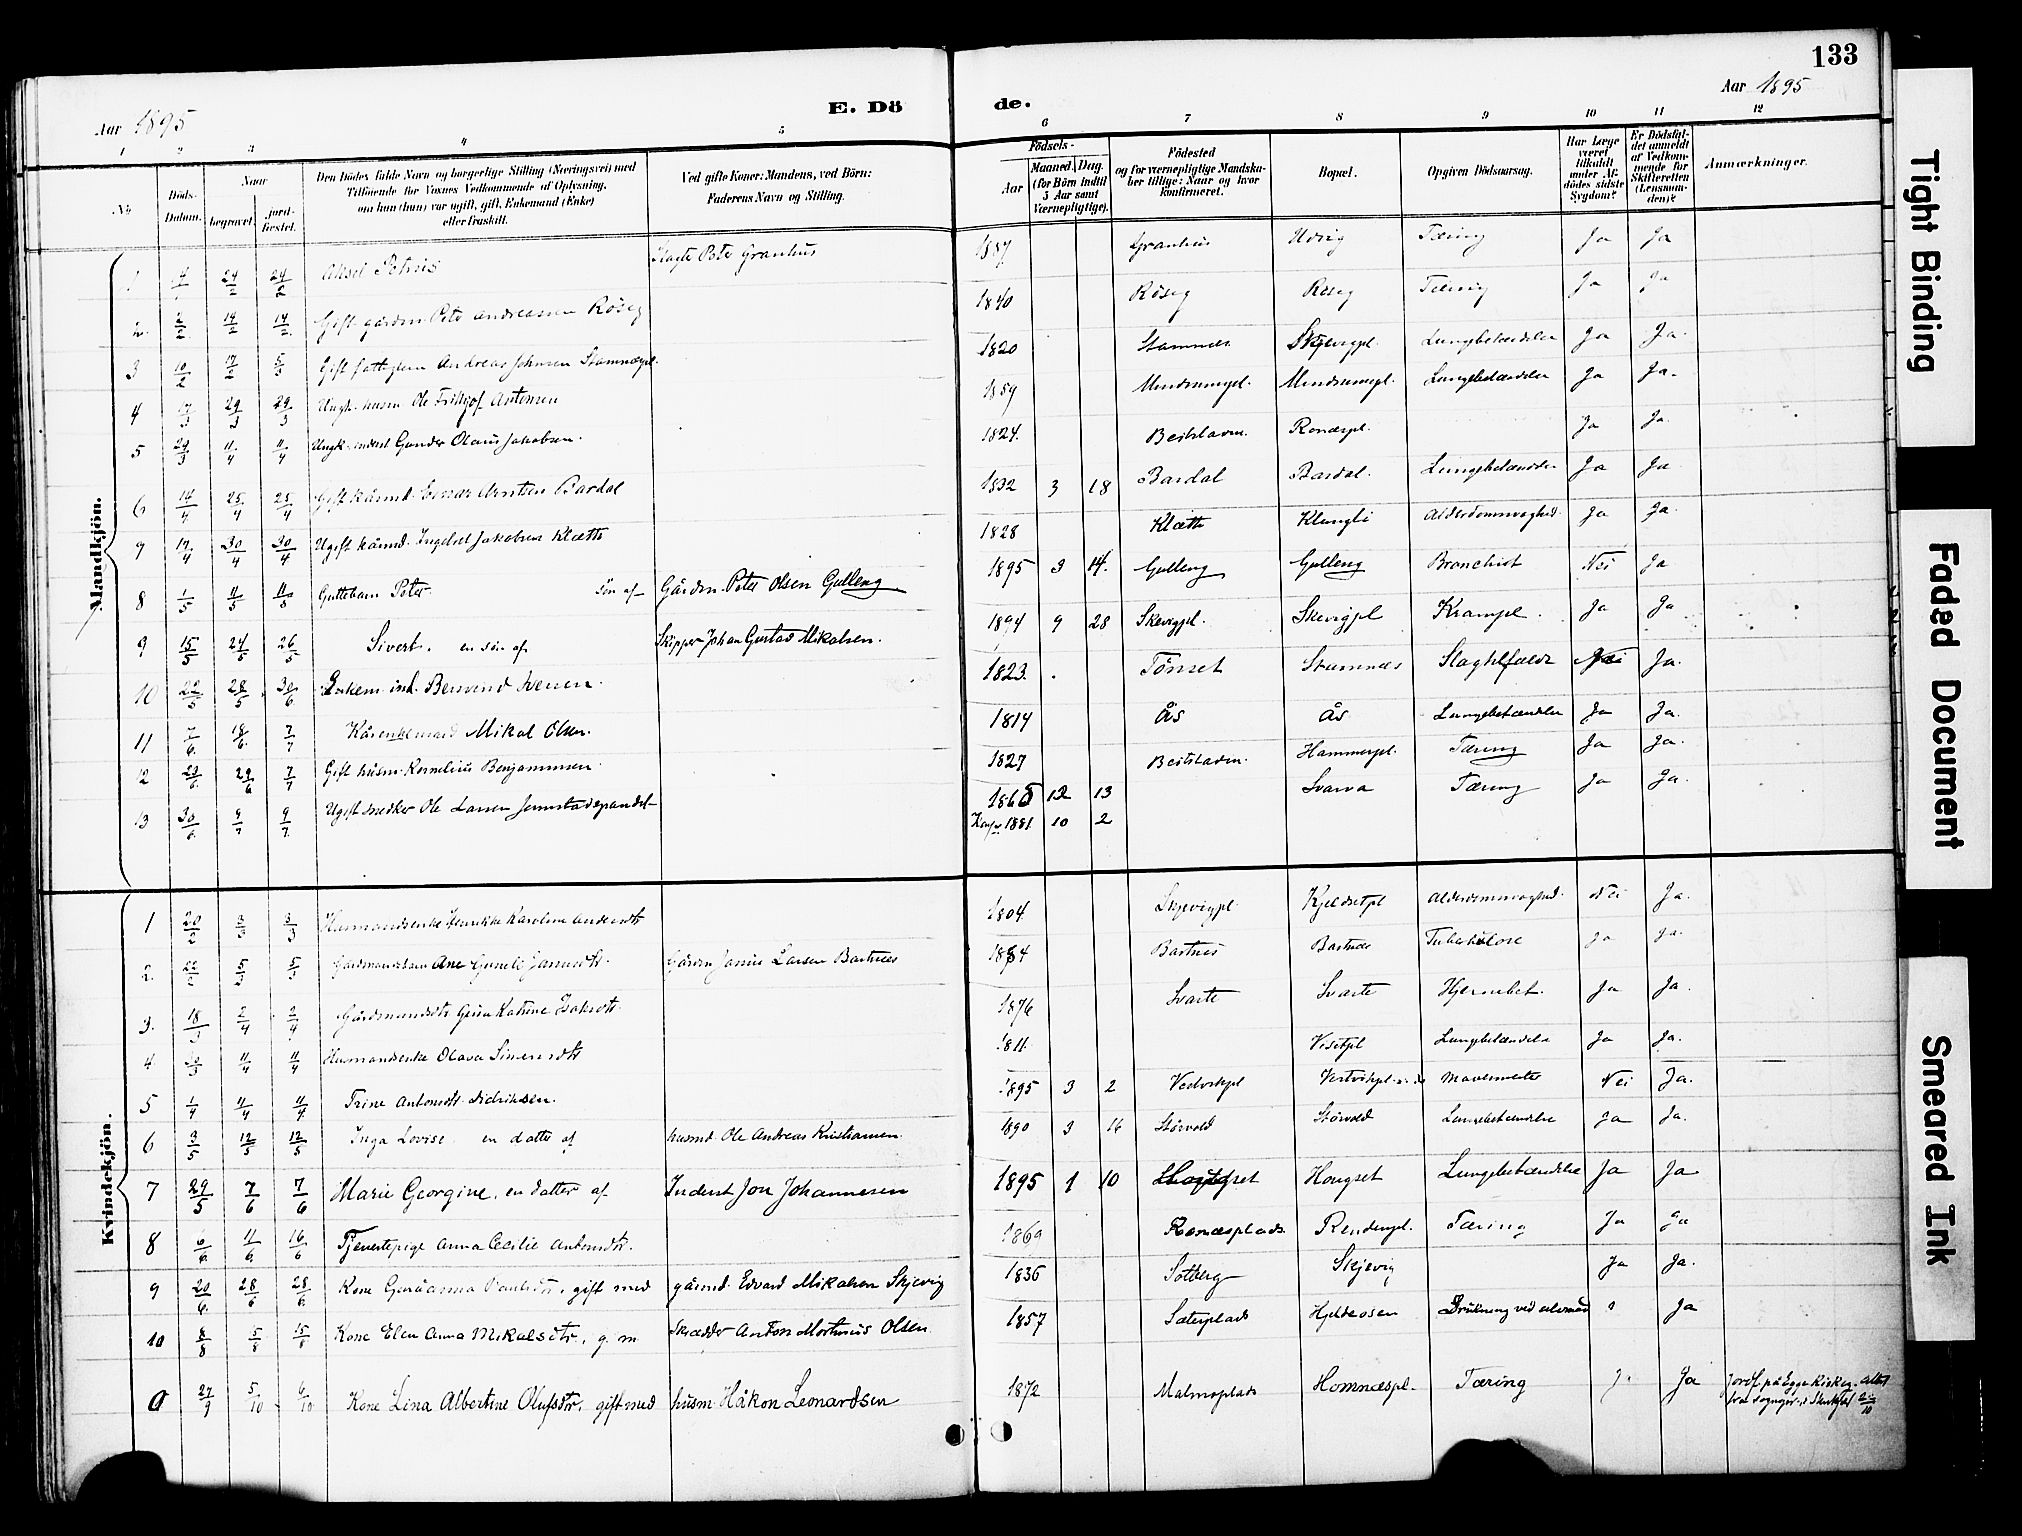 133
Aar 1895
E. Dö
de.
Aar 1895
1 2 3 4 5 6 7 8 9 10 11 12
No.
Döds-Datum.
Naar
begravet.
jord-fæstet.
Den Dödes fulde Navn og borgerlige Stilling (Næringsvei) med
Tilföiende for Voxnes Vedkommende af Oplysning,
om han (hun) var ugift, gift, Enkemand (Enke)
eller fraskilt.
Ved gifte Koner: Mandens, ved Börn:
Faderens Navn og Stilling.
Födsels-
Aar
Maaned. Dag.
(for Börn indtil
5 Aar samt
Værnepligtige).
Födested
og for værnepligtige Mandska-
ber tillige: Naar og hvor
konfirmeret.
Bopæl.
Opgiven Dödsaarsag.
Har Læge
været
tilkaldt
under Af-
dödes sidste
Sygdom?
Er Dödsfal-
det anmeldt
af Vedkom-
mende for
Skifteretten
(Lensman-
den)?
Anmærkninger.
Mandkjön.
1 24/2 24/2 Aksel Petrus Peter Granhus 1887 Granhus Tæring Ja Ja
2. 2/2 14/2 14/2 Gift gårdm. Andreassen Röseg 1840 Röseg Röseg Tæring Ja Ja
3 10/2 17/2 5/3 Gift Andreas Johnsen 1820 Stamnes Skjevigpl. Lungebetændelse Ja Ja.
4 17/3 29/3 29/3 Ungk. husm. Ole Frithjof Antonsen 1859 Lungebetændelse Ja Ja.
5 29/3 11/4 11/4 Ungk. inderst Gunder Olaus Jakobsen. 1824. Beitstaden. Ronæspl. Ja Ja.
6 14/4 25/4 25/4 Gift kårmd. Arntsen Bardal 1832 3 18 Bardal Bardal. Lungebetændelse Ja Ja.
7 17/4 30/4 30/4 Ugift kårmd. Jakobsen Klætte 1828 Klætte Klungli Alderdomssvaghed. Ja Ja.
8 1/5 11/5 11/5 Guttebarn Peter. sön af Gårdm. Peter Olsen Gulleng 1895 3 14. Gulleng Gulleng Bronchist Nei Ja
9 15/5 24/5 26/5 Sivert. en sön af Skipper Johan Gustav Mikalsen. 1894 9 28 Skevigpl. Skevigpl Krampe. Ja Ja
10 22/5 28/5 30/6 Enkem. ind. 1823. Tönset Stamnæs Slagtilfælde Nei Ja.
11 7/6 18/6 7/7 Kårenkemand Mikal Olsen. 1814 Ås Ås Lungebetændelse Ja Ja.
12 22/6 29/6 7/7 Gift husm. Kornelius Benjaminsen. 1827 Beitstaden. Hammerpl. Tæring Ja Ja.
13 30/6 9/7 9/7 Ugift snedker Ole Larsen 1865 12 13 Svarva Tæring Ja Ja.
Konf. 1881. 10 2
Kvindekjön.
1 20/2 3/3 3/3 Husmandsenke Henrikke Karoline Andersdtr 1804. Skjevigpl. Kjeldsetpl Alderdomssvaghed. Nei Ja.
2. 22/2 5/3 5/3 Ane Guneli Janusdtr. Gårdm Janus Larsen Bartnes 1884 Bartnes Bartnes Tuberkulose Ja Ja.
3. 18/3 2/4 2/4 Gårdmandsdtr Katrine Isaksdtr. 1876 Svarte Svarte Hjernebet. Ja Ja.
4 30/3 11/4 11/4 Husmandsenke Olava Simensdtr 1811. Lungebetændelse Ja Ja.
5 1/4 11/4 11/4 Trine Antonsdtr. Didriksen. 1895 3 2 Vedvikpl Nei Ja.
6 3/5 12/5 12/5 Inga Lovise. en datter af husmd. Ole Andreas Kristiansen. 1890 3 16 Störvold Störvold Lungebetændelse Ja Ja.
7 29/5 7/6 7/6 Marie Georgine. en datter af Inderst Jon Johannesen 1895 1 10 Hougset Lungebetændelse Ja Ja
8 6/6 11/6 16/6 Tjenestepige Anna Cecilie Antonsdtr. 1869 Ronæsplads Rendenpl. Tæring Ja Ja
9 20/6. 28/6 28/6 Kone Paulsdtr. gift med gårmd. Edvard Mikalsen Skjevig 1836 Solberg Skjevig Ja Ja.
10 8/8 5/8 15/8 Kone Elen Anna Mikalsdtr. g. m Skrædder Anton Mortinus Olsen. 1857 Sæterplads Hjeldeosen Drukning ved Ja
27/9 5/10 6/10 Kone Lina Albertine Olufsdtr. gift med husm. Håkon Leonardsen 1872 Malmoplads Homnæspl. Tæring Ja Jordf. på Egge Kirkeg.
Tight Binding
Faded Document
Smeared Ink